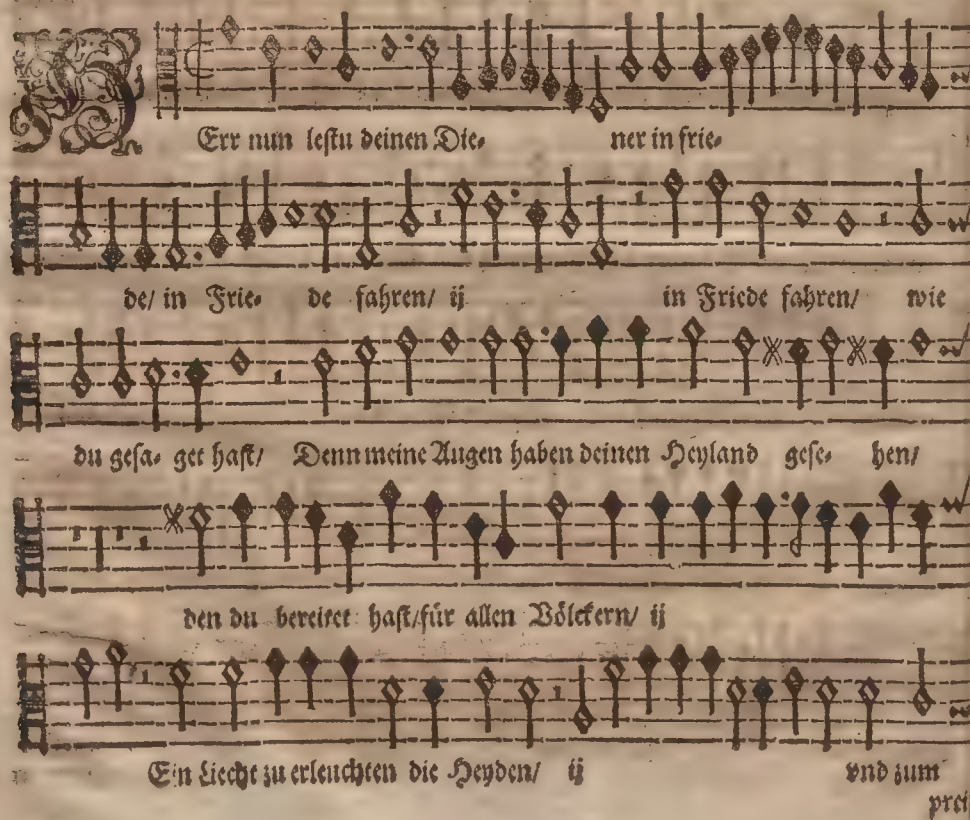 HErr nun lestu deinen Die- ner in frie-
de/ in Frie- de fahren/ ij in Friede fahren/ wie
du gesa- get hast/ Denn meine Augen haben deinen Heyland gese- hen/
den du bereitet hast/für allen Völckern/ ij
Ein Liecht zu erleuchten die Heyden/ ij vnd zum
prei